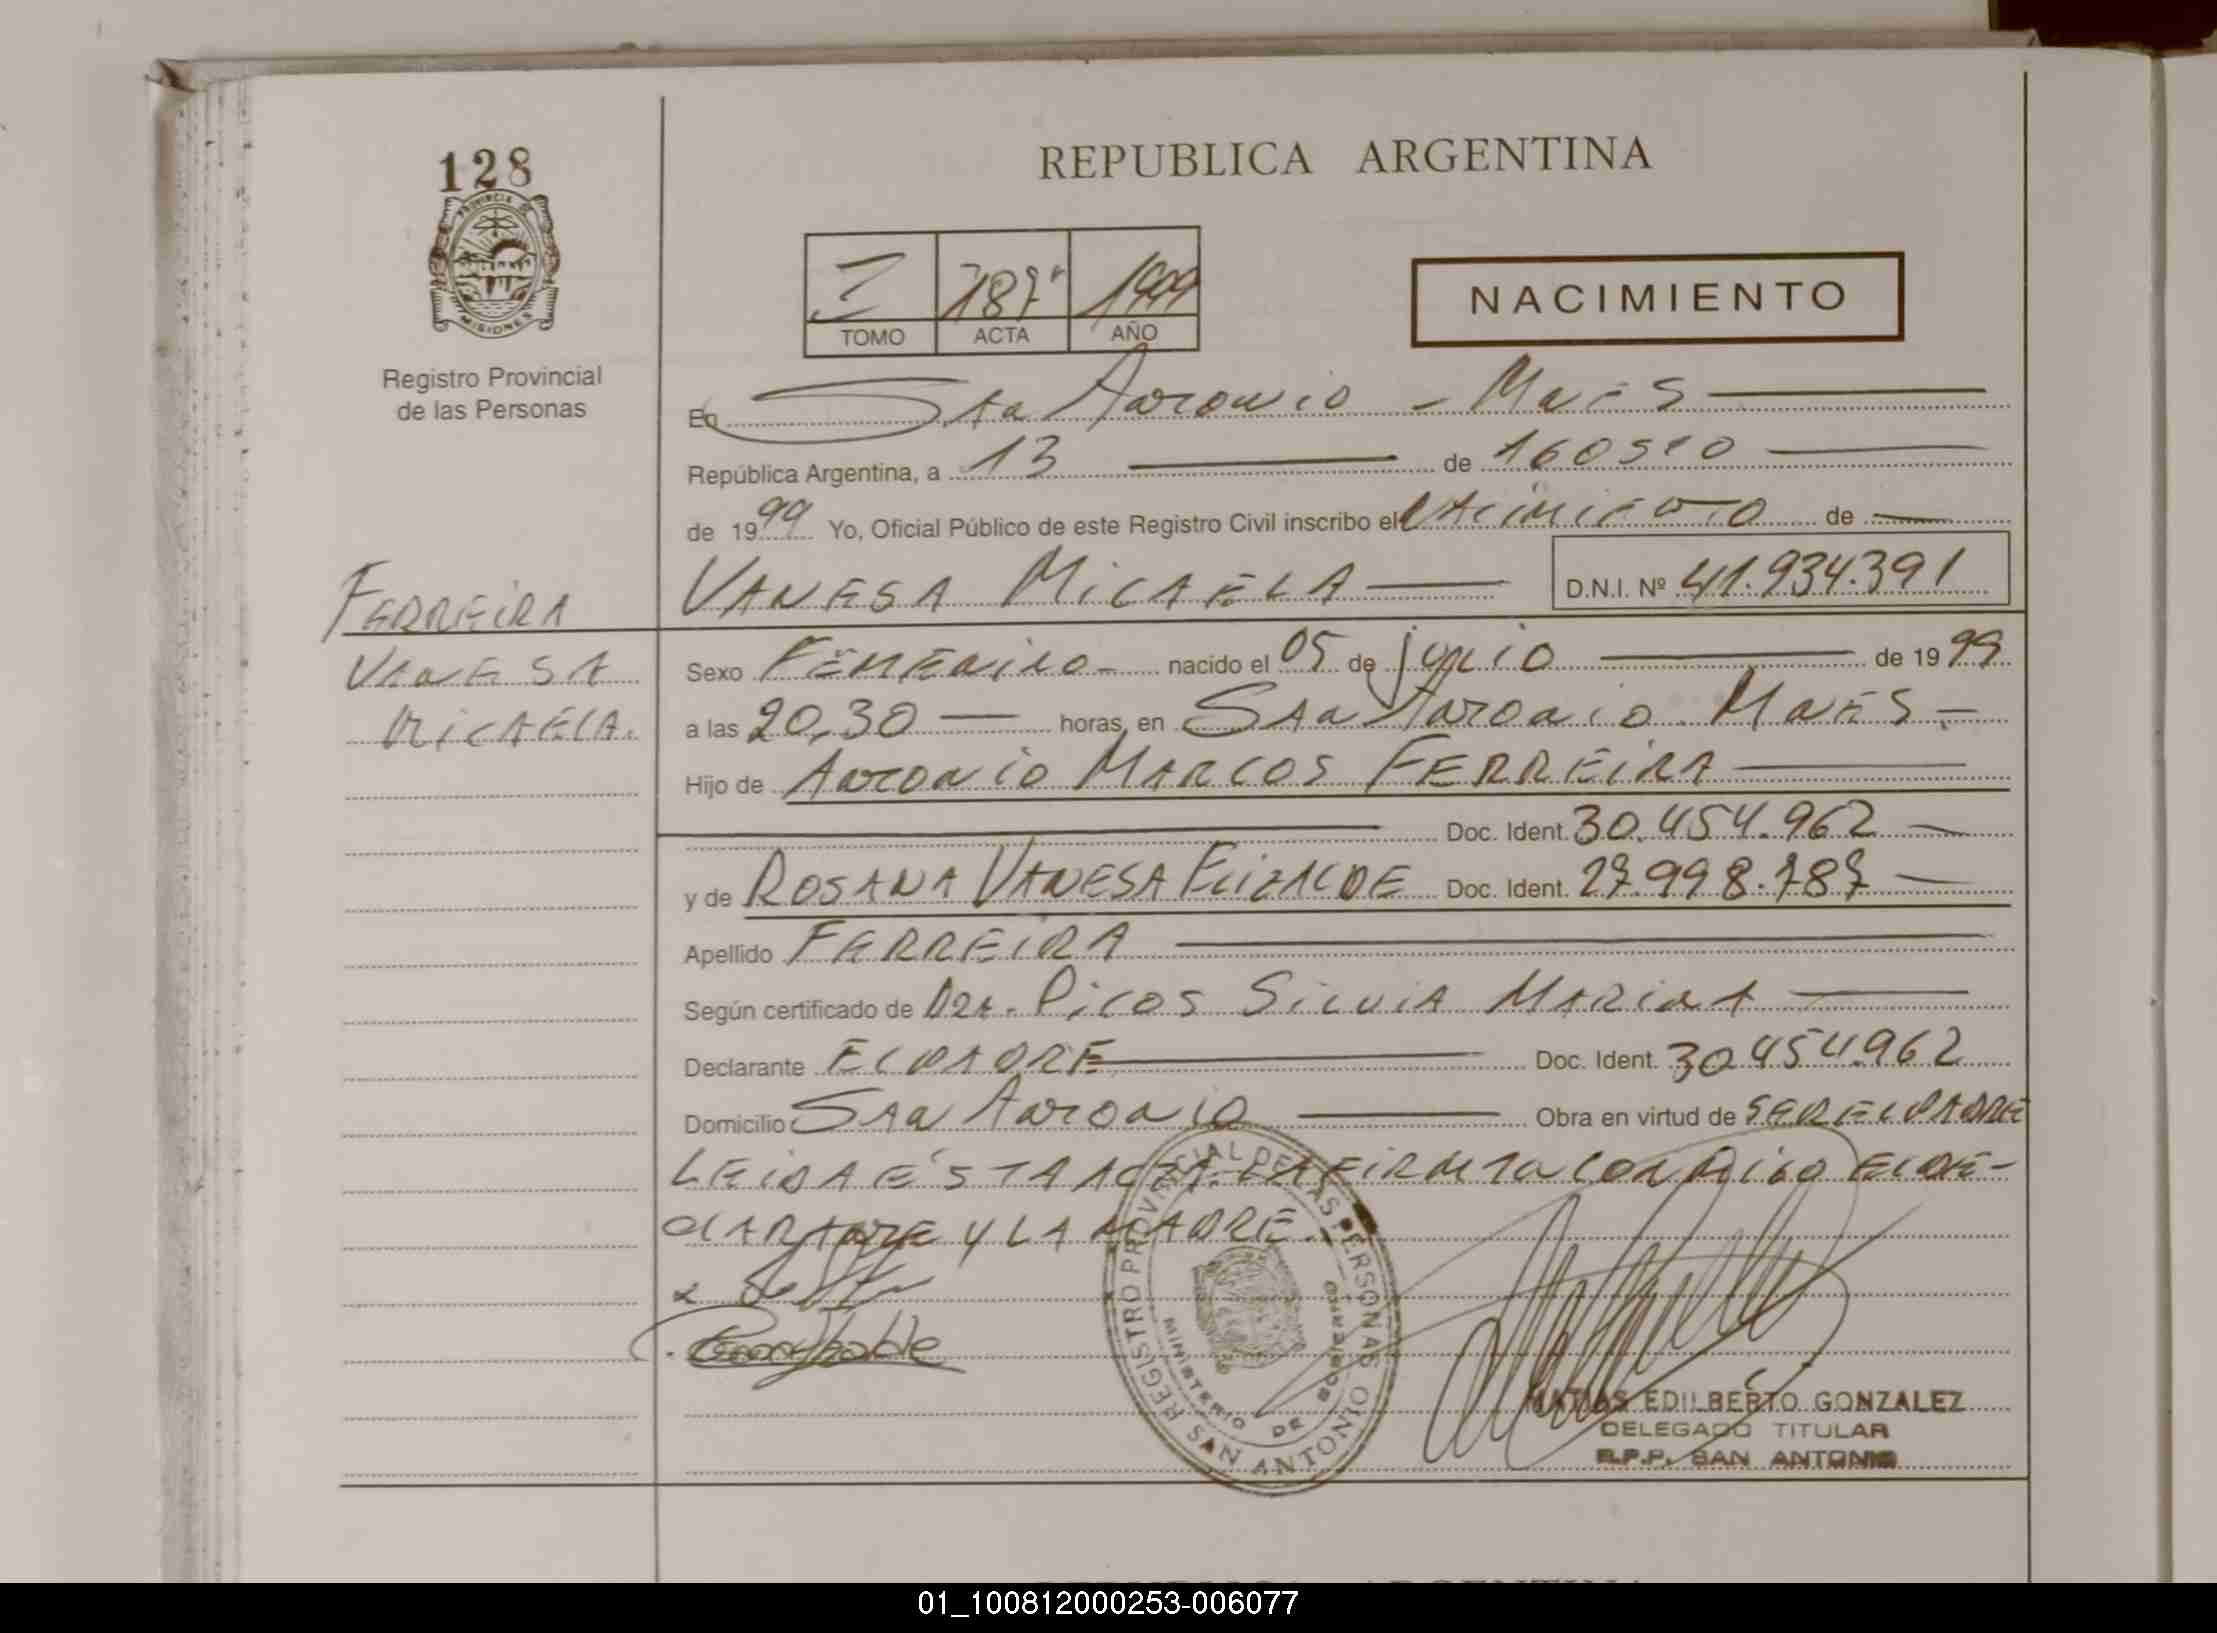 128
PROVINCIA DE
MISIONES
Registro Provincial
de las Personas
REPUBLICA ARGENTINA
I 187 1999
TOMO ACTA AÑO
NACIMIENTO
En San Antonio - Mnes
República Argentina, a 13 de Agosto
de 1999 Yo, Oficial Público de este Registro Civil inscribo el Nacimiento de
VANESA MICAELA D.N.I. Nº 41.934.391
FERREIRA
VANESA
MICAELA.
Sexo FEMENINO - nacido el 05 de junio de 1999
a las 20,30 horas, en San Antonio Mnes -
Hijo de ANTONIO MARCOS FERREIRA
Doc. Ident. 30.454.962
y de ROSANA VANESA ELIZALDE Doc. Ident. 27.998.787
Apellido FERREIRA
Según certificado de DRA. PICOS SILVIA MARINA
Declarante EL PADRE Doc. Ident. 30454.962
Domicilio San Antonio Obra en virtud de SER EL PADRE
LEIDA ÉSTA ACTA. LA FIRMAN CONMIGO EL DE-
CLARANTE Y LA MADRE.
REGISTRO PROVINCIAL DE LAS PERSONAS
MINISTERIO DE GOBIERNO
SAN ANTONIO
MATIAS EDILBERTO GONZALEZ
DELEGADO TITULAR
R.P.P. SAN ANTONIO
01_100812000253-006077